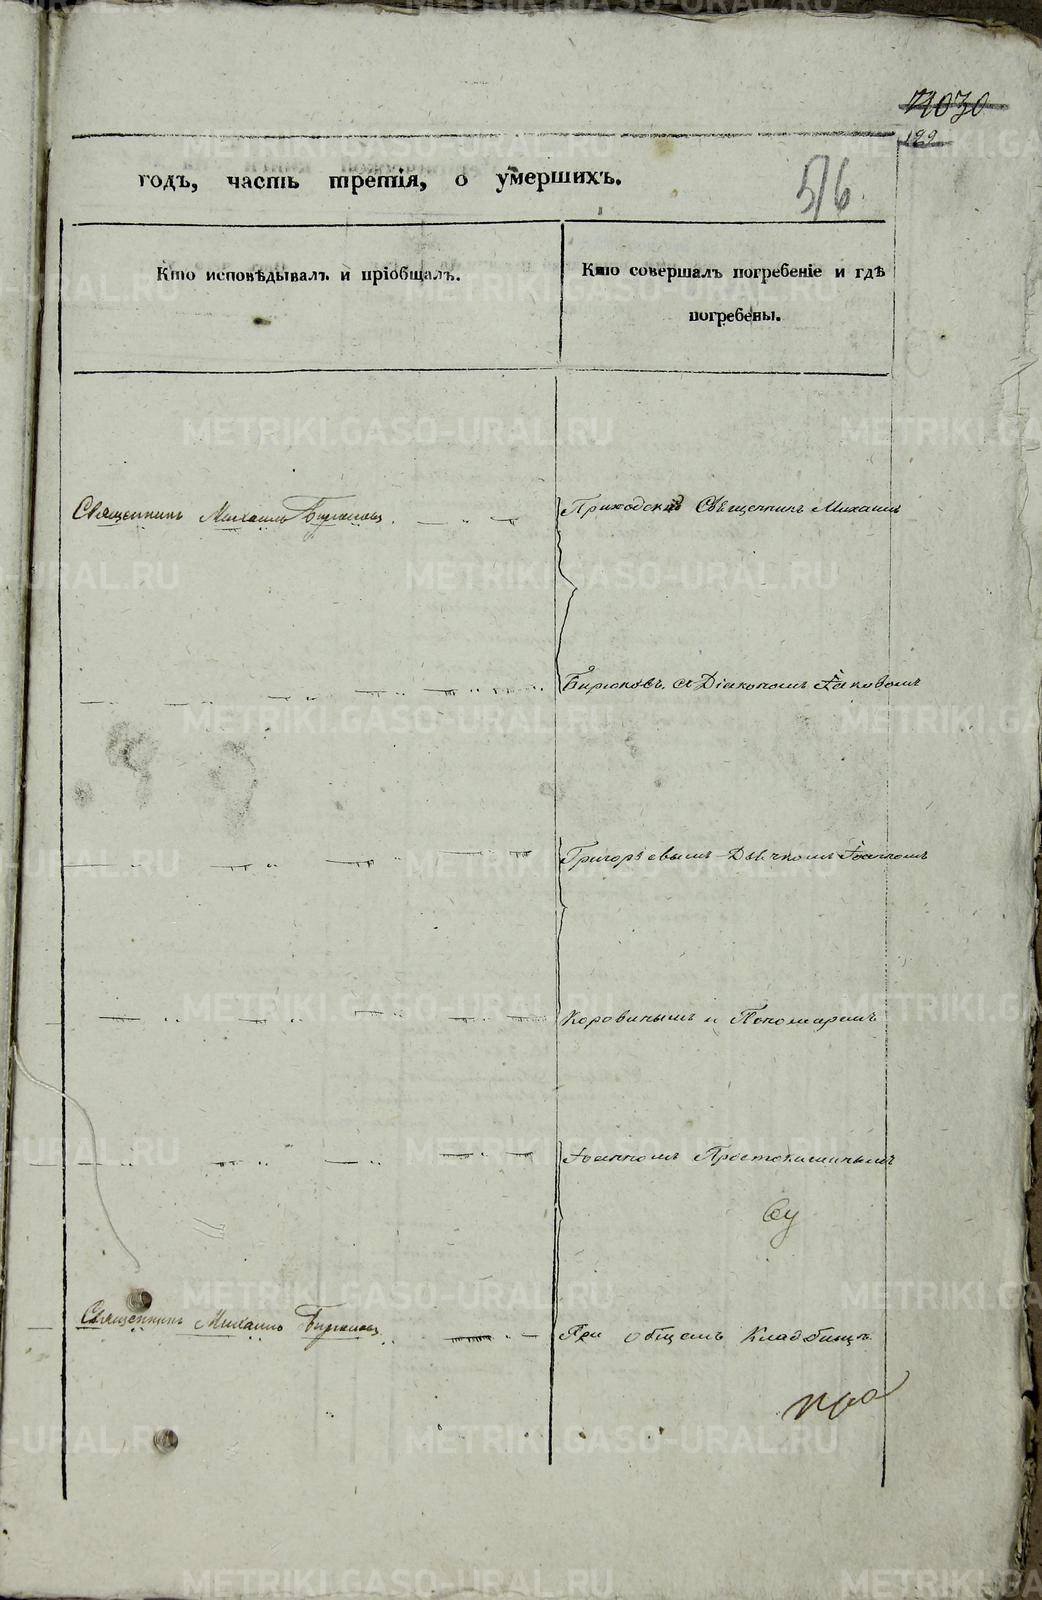 1030
199
516
годъ, часть третія, о умершихъ.
Кто исповѣдывалъ и пріобщалъ.
Кто совершалъ погребеніе и гдѣ
погребены.
Священникъ Михаилъ Бирюковъ.
Приходскій Священникъ Михаилъ
Бирюковъ, съ Діакономъ Іаковомъ
Григорьевымъ Дьячкомъ Іоанномъ
Коровинымъ и Пономаремъ
Іоанномъ Простокишинымъ
Священникъ Михаилъ Бирюковъ
При общемъ Кладбищѣ
METRIKI.GASO-URAL.RU